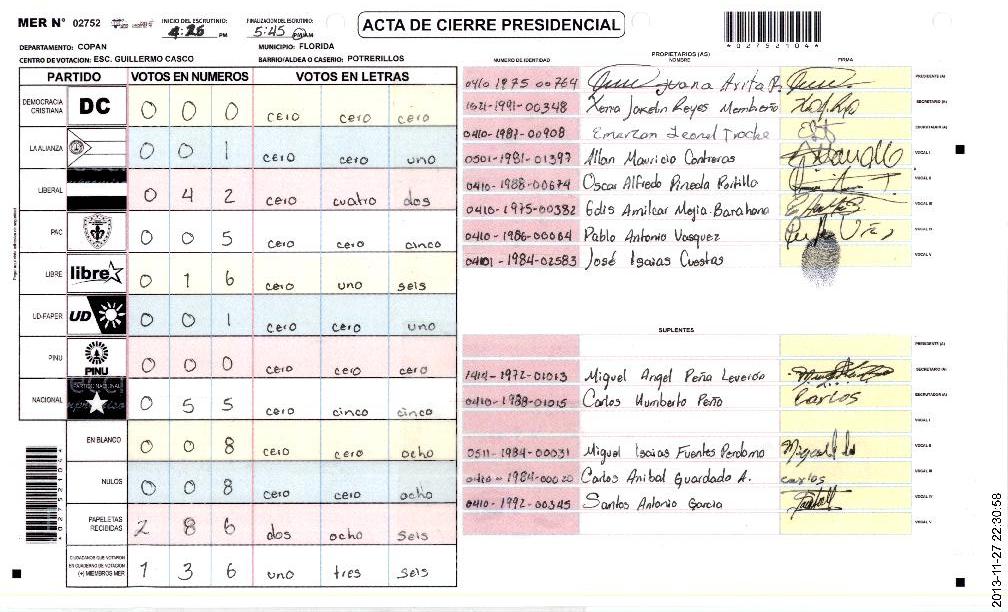 MER N° 02752
INICIO DEL ESCRUTINIO: 4:25 PM
FINALIZACION DEL ESCRUTINIO: 5:45
ACTA DE CIERRE PRESIDENCIAL
*02752104*
DEPARTAMENTO: COPAN
MUNICIPIO: FLORIDA
CENTRO DE VOTACION: ESC. GUILLERMO CASCO
BARRIO/ALDEA O CASERIO: POTRERILLOS
PARTIDO VOTOS EN NUMEROS VOTOS EN LETRAS
DEMOCRACIA CRISTIANA DC 0 0 0 cero cero cero
LA ALIANZA 0 0 1 cero cero uno
LIBERAL 0 4 2 cero cuatro dos
PAC 0 0 5 cero cero cinco
LIBRE libre 0 1 6 cero uno seis
UD-FAPER UD 0 0 1 cero cero uno
PINU PINU 0 0 0 cero cero cero
NACIONAL PARTIDO NACIONAL 0 5 5 cero cinco cinco
EN BLANCO 0 0 8 cero cero ocho
NULOS 0 0 8 cero cero ocho
PAPELETAS RECIBIDAS 2 8 6 dos ocho seis
CIUDADANOS QUE VOTARON EN CUADERNO DE VOTACION (+) MIEMBROS MER 1 3 6 uno tres seis
*02752104*
PROPIETARIOS (AS)
NUMERO DE IDENTIDAD NOMBRE FIRMA
0410 1975 00764 Juana Avita PRESIDENTE (A)
1621-1991-00348 Xenia Jakelin Reyes Membreño SECRETARIO (A)
0410-1987-00908 Emerzon Leonel Troche ESCRUTADOR (A)
0501-1981-01397 Allan Mauricio Contreras VOCAL I
0410-1988-00674 Oscar Alfredo Pineda Portillo VOCAL II
0410-1975-00382 Edis Amilcar Mejia Barahona VOCAL III
0410-1986-00064 Pablo Antonio Vasquez VOCAL IV
04101-1984-02583 José Isaias Cuestas VOCAL V
SUPLENTES
PRESIDENTE (A)
1414-1972-01013 Miguel Angel Peña Leverón SECRETARIO (A)
0410-1988-01015 Carlos Humberto Peño Carlos ESCRUTADOR (A)
VOCAL I
0511-1984-00031 Miguel Isaias Fuentes Perdomo VOCAL II
0410-1984-00020 Carlos Anibal Guardado A. carlos VOCAL III
0410-1992-00345 Santos Antonio Garcia VOCAL IV
VOCAL V
2013-11-27 22:30:58